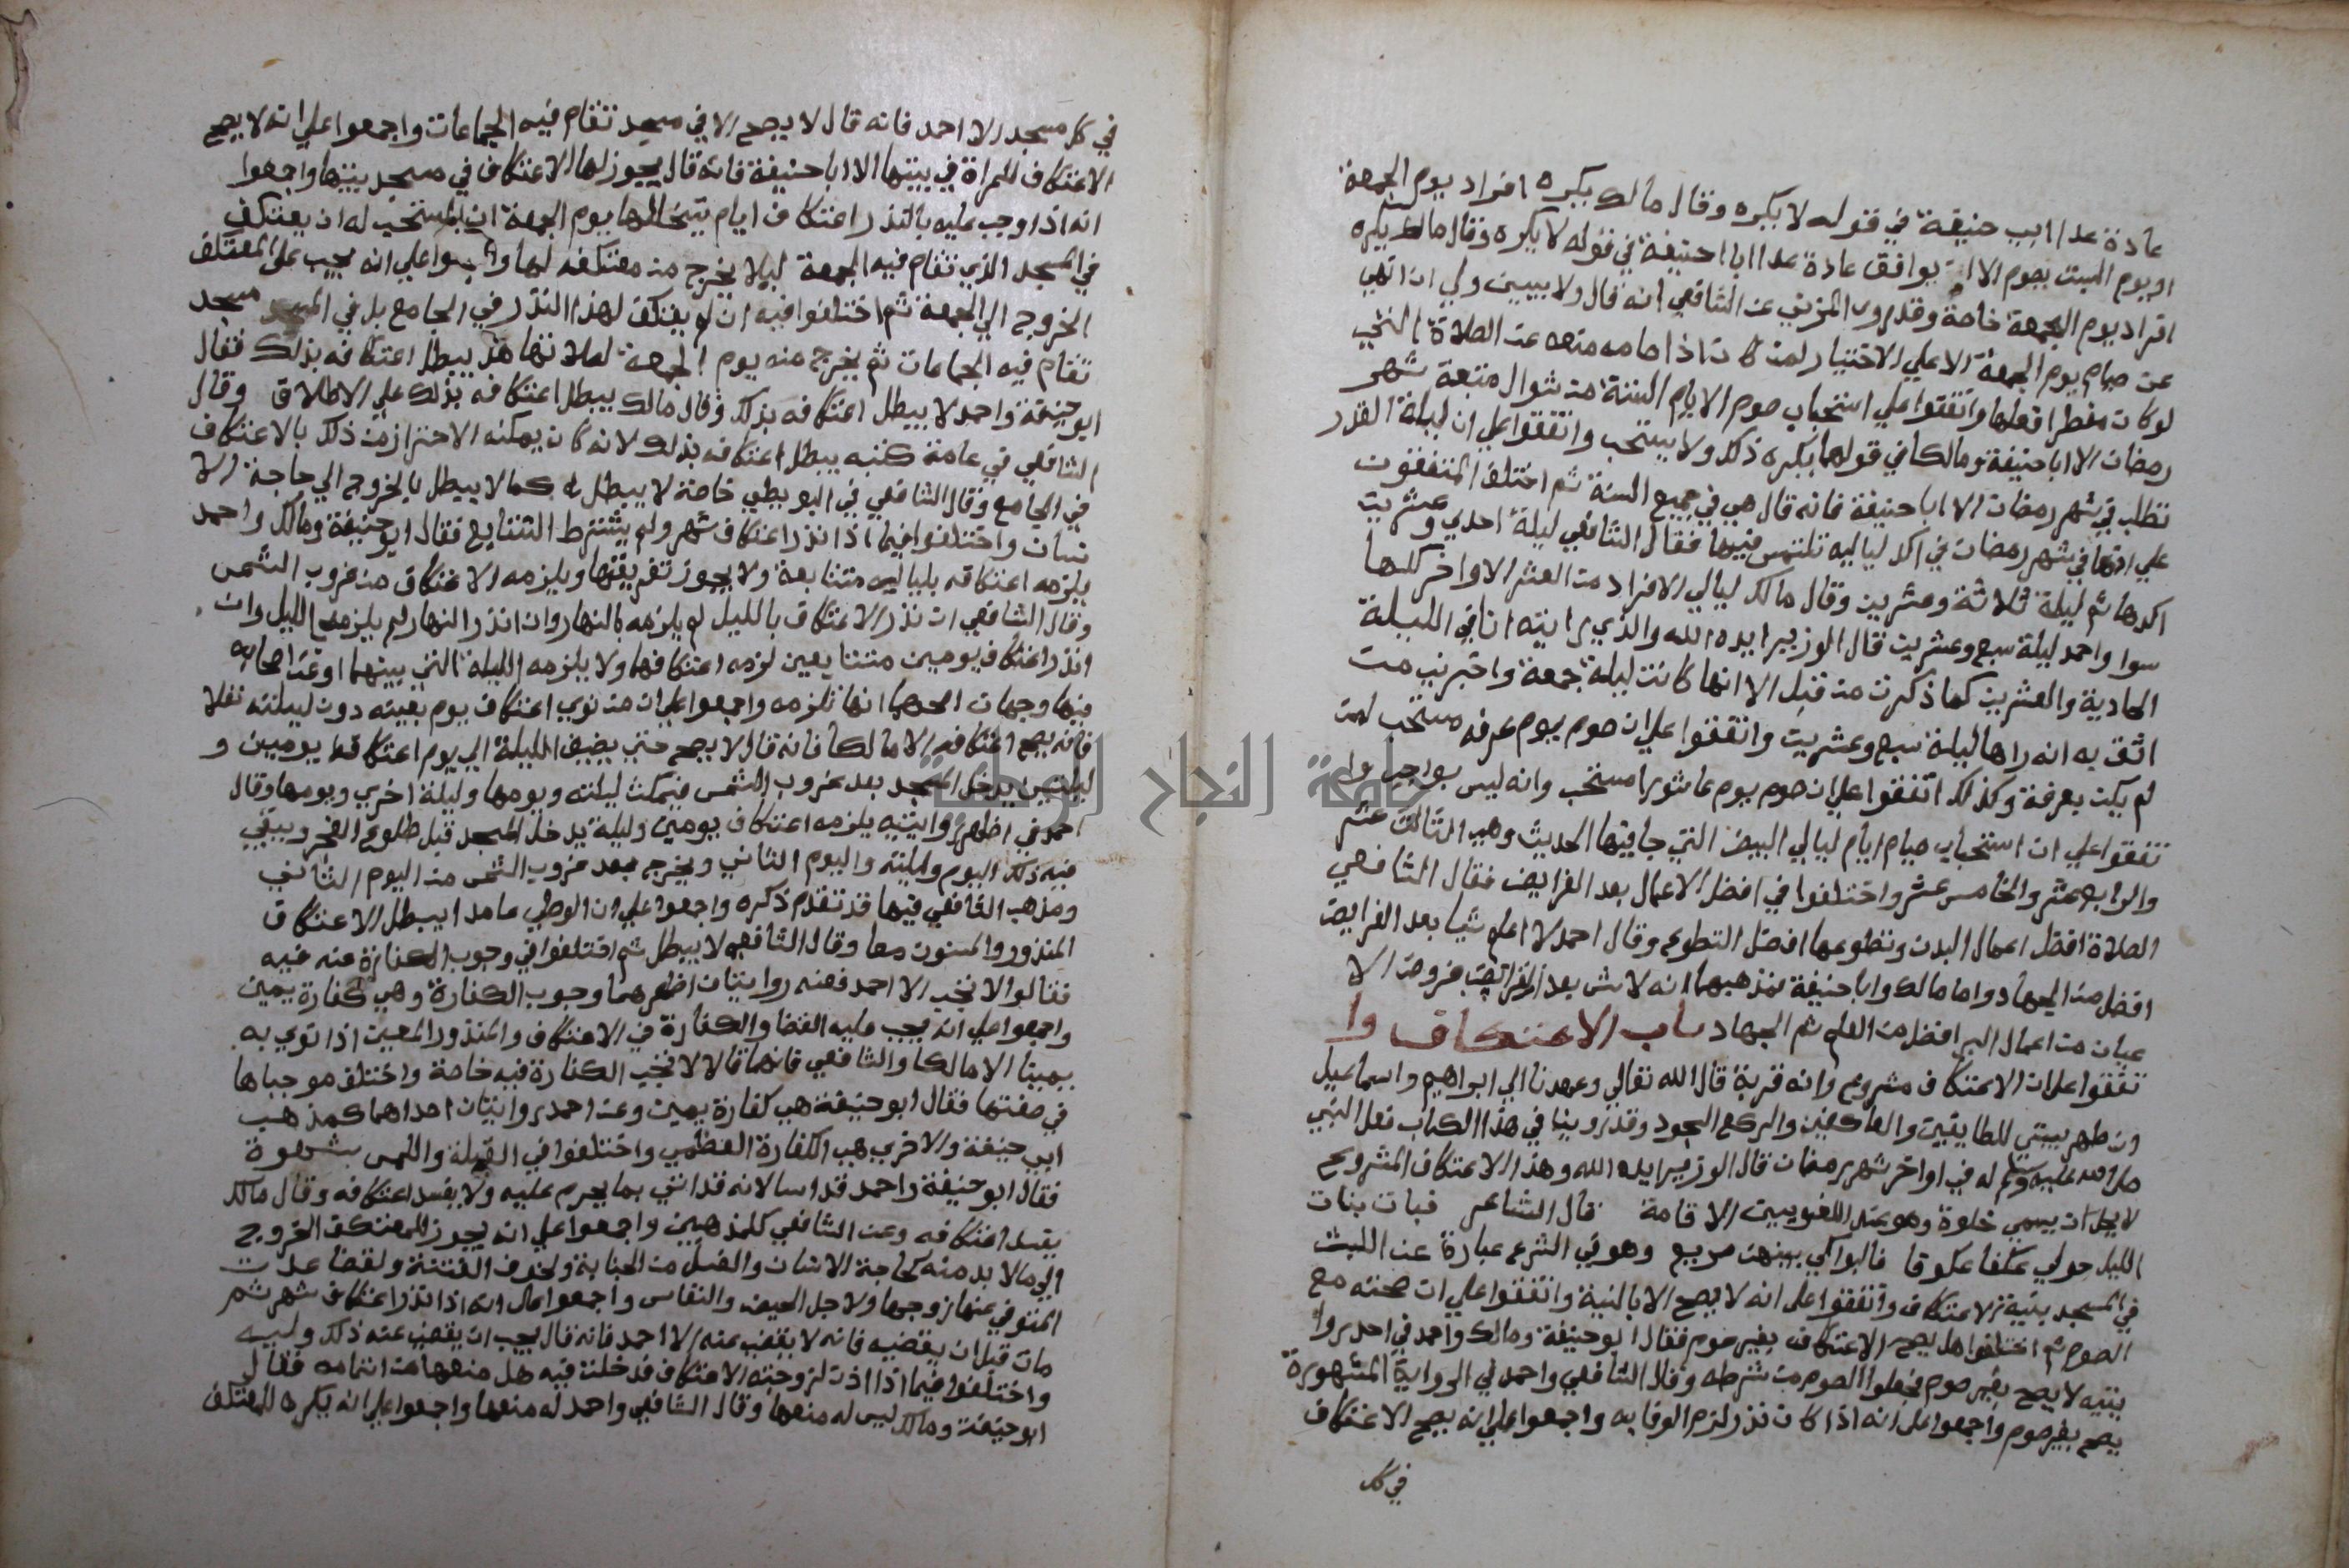 عادة عدا ابي حنيفة في قوله لا يكره وقال مالك يكره افراد يوم الجمعة
او يوم السبت بصوم الا ان يوافق عادة عدا ابا حنيفة في قوله لا يكره وقال مالك يكره
افراد يوم الجمعة خاصة وقد روى المزني عن الشافعي انه قال ولا يبين ولي ان انهي
عن صيام يوم الجمعة الا علي الاختيار لمن كان اذا صامه منعه عن الصلاة التي
لو كان مفطرا فعلها واتفقوا علي استحباب صوم الايام الستة من شوال متبعة شهر
رمضان الا ابا حنيفة ومالكا في قولهما يكره ذلك ولا يستحب واتفقوا علي ان ليلة القدر
تطلب في شهر رمضان الا ابا حنيفة فانه قال هي في جميع السنة ثم اختلف المتفقون
علي انها في شهر رمضان في اكد لياليه تلتمس فيها فقال الشافعي ليلة احدي وعشرين
اكدها ثم ليلة ثلاثة وعشرين وقال مالك ليالي الافراد من العشر الاواخر كلها
سوا واحمد ليلة سبع وعشرين قال الوزير ايده الله والذي رايته انا في الليلة
الحادية والعشرين كما ذكرت من قبل الا انها كانت ليلة جمعة واخبرني من
اثق به انه راها ليلة سبع وعشرين واتفقوا علي ان صوم يوم عرفه مستحب لمن
لم يكن بعرفة وكذلك اتفقوا علي ان صوم يوم عاشورا مستحب وانه ليس بواجب وا
تفقوا علي ان استحباب صيام ايام ليالي البيض التي جا فيها الحديث وهي الثالث عشر
والرابع عشر والخامس عشر واختلفوا في افضل الاعمال بعد الفرايض فقال الشافعي
الصلاة افضل اعمال البدن وتطوعها افضل التطوع وقال احمد لا اعلم شيا بعد الفرايض
افضل من الجهاد واما مالك وابا حنيفة فمذهبهما انه لا شي بعد الفرايض فروض الا
عيان من اعمال البر افضل من العلم ثم الجهاد باب الاعتكاف وا
تفقوا علي ان الاعتكاف مشروع وانه قربة قال الله تعالي وعهدنا الي ابراهيم واسماعيل
ان طهر بيتي للطايفين والعاكفين والركع السجود وقد روينا في هذا الكتاب فعل النبي
صلي الله عليه وسلم له في اواخر شهر رمضان قال الوزير ايده الله وهذا الاعتكاف المشروع
لا يحل ان يسمي خلوة وهو عند اللغويين الاقامة قال الشاعر فبات بنات
الليل حولي عكفا عكوفا فالبواكي بينهن صريع وهو في الشرع عبارة عن اللبث
في المسجد بنية الاعتكاف واتفقوا علي انه لا يصح الا بالنية واتفقوا علي ان صحته مع
الصوم ثم اختلفوا هل يصح الاعتكاف بغير صوم فقال ابو حنيفة ومالك واحمد في احدي روا
يتيه لا يصح بغير صوم فجعلوا الصوم من شرطه وقال الشافعي واحمد في الرواية المشهورة
يصح بغير صوم واجمعوا علي انه اذا كان نذر لزم الوفا به واجمعوا علي انه يصح الاعتكاف
في كل
في كل مسجد الا احمد فانه قال لا يصح الا في مسجد تقام فيه الجماعات واجمعوا علي انه لا يصح
الاعتكاف للمراة في بيتها الا ابا حنيفة فانه قال يجوز لها الاعتكاف في مسجد بيتها واجمعوا
انه اذا وجب عليه بالنذر اعتكاف ايام يتخللها يوم الجمعة ان المستحب له ان يعتكف
في المسجد الذي تقام فيه الجمعة ليلا يخرج من معتكفه لها واجمعوا علي انه يجب علي المعتكف
الخروج الي الجمعة ثم اختلفوا فيه ان لم يعتكف لهذا النذر في الجامع بل في مسجد
تقام فيه الجماعات ثم يخرج منه يوم الجمعة لصلاتها هل يبطل اعتكافه بذلك فقال
ابو حنيفة واحمد لا يبطل اعتكافه بذلك وقال مالك يبطل اعتكافه بذلك علي الاطلاق وقال
الشافعي في عامة كتبه يبطل اعتكافه بذلك لانه كان يمكنه الاحتراز من ذلك بالاعتكاف
في الجامع وقال الشافعي في البويطي خاصة لا يبطل له كما لا يبطل بالخروج الي حاجة الا
نسان واختلفوا فيما اذا نذر اعتكاف شهر ولم يشترط التتابع فقال ابو حنيفة ومالك واحمد
يلزمه اعتكافه بلياليه متتابعة ولا يجوز تفريقها ويلزمه الاعتكاف من غروب الشمس
وقال الشافعي ان نذر الاعتكاف بالليل لم يلزمه بالنهار وان نذر النهار لم يلزمه الليل وان
نذر اعتكاف يومين متتابعين لزمه اعتكافها ولا يلزمه الليلة التي بينهما وعن اصحابه
فيها وجهان اصحهما انها تلزمه واجمعوا علي ان من نوي اعتكاف يوم بعينه دون ليلته نفلا
فانه يصح اعتكافه الا مالكا فانه قال لا يصح حتي يضيف الليلة الي يوم اعتكافه يومين و
ليلتين يدخل المسجد بعد غروب الشمس فيمكث ليلته ويومها وليلة اخري ويومها وقال
احمد في اظهر روايتيه يلزمه اعتكاف يومين وليلة يدخل المسجد قبل طلوع الفجر ويبقي
فيه ذلك اليوم وليلته واليوم الثاني ويخرج بعد غروب الشمس من اليوم الثاني
ومذهب الشافعي فيها قد تقدم ذكره واجمعوا علي ان الوطي عامدا يبطل الاعتكاف
المنذور والمسنون معا وقال الشافعي لا يبطل ثم اختلفوا في وجوب الكفارة عنه فيه
فقالوا لا تجب الا احمد فعنه روايتان اظهرهما وجوب الكفارة وهي كفارة يمين
واجمعوا علي انه يجب عليه القضا والكفارة في الاعتكاف والمنذور المعين اذا نوي به
يمينا الا مالكا والشافعي فانهما قالا لا تجب الكفارة فيه خاصة واختلف موجباها
في صفتها فقال ابو حنيفة هي كفارة يمين وعن احمد روايتان احداهما كمذهب
ابي حنيفة والاخري هي الكفارة العظمي واختلفوا في القبلة واللمس بشهوة
فقال ابو حنيفة واحمد قد اسا لانه قد اتي بما يحرم عليه ولا يفسد اعتكافه وقال مالك
يفسد اعتكافه وعن الشافعي كالمذهبين واجمعوا علي انه يجوز للمعتكف الخروج
الي ما لا بد منه كحاجة الانسان والغسل من الجنابة ولخوف الفتنة ولقضا عدة
المتوفي عنها زوجها ولاجل الحيض والنفاس واجمعوا علي انه اذا نذر اعتكاف شهر ثم
مات قبل ان يقضيه فانه لا يقضي عنه الا احمد فانه قال يجب ان يقضي عنه ذلك وليه
واختلفوا فيما اذا اذن لزوجته الاعتكاف فدخلت فيه هل منعها من اتمامه فقال
ابو حنيفة ومالك ليس له منعها وقال الشافعي واحمد له منعها واجمعوا علي انه يكره للمعتكف
جامعة النجاح الوطنية